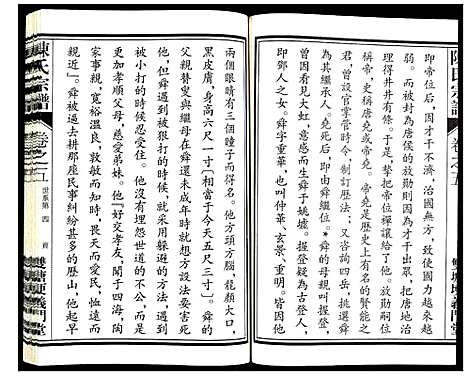 陳氏宗譜
卷之五
即帝位后，因才干不濟，治國無方，致使國力越來越
弱。而被封為唐侯的放勛則因為才干出眾，把唐地治
理得井井有條。于是，摯把帝位禪讓給了他。放勛嗣位
稱帝，史稱唐堯或帝堯。帝堯是歷史上以賢能之
君，曾設官掌管時令，制訂歷法，又咨詢四岳，挑選
舜作為繼承人。堯死后，即由舜繼位。*舜的得名是
因看見大虹，意感而生舜于姚墟。握登疑為古登人，
即鄧人之女。舜字重華，又字仲華、玄景、重明。皆因他
兩個眼睛有三個瞳子而得名。他方頑方腦，龍顏大口，
黑皮膚，身高六尺一寸〔相當于今天五尺三寸〕。舜的
父親瞽叟與繼母在舜還未成年時就想方設法要害死
他。被小打的時候忍受住，大的時候，就采用躲避的方法，
使父母的方法失敗。他沒有埋怨世道的不公，而是
更加孝順父母，慈愛弟妹。他『好交孝友，聞于四海，陶
家事親，寬裕溫良，敦敏而知時，畏天而愛民，恤遠而
親近』。舜被過去耕那座民事糾紛甚多的歷山，他起早
陳氏宗譜
卷之五
世系第
四